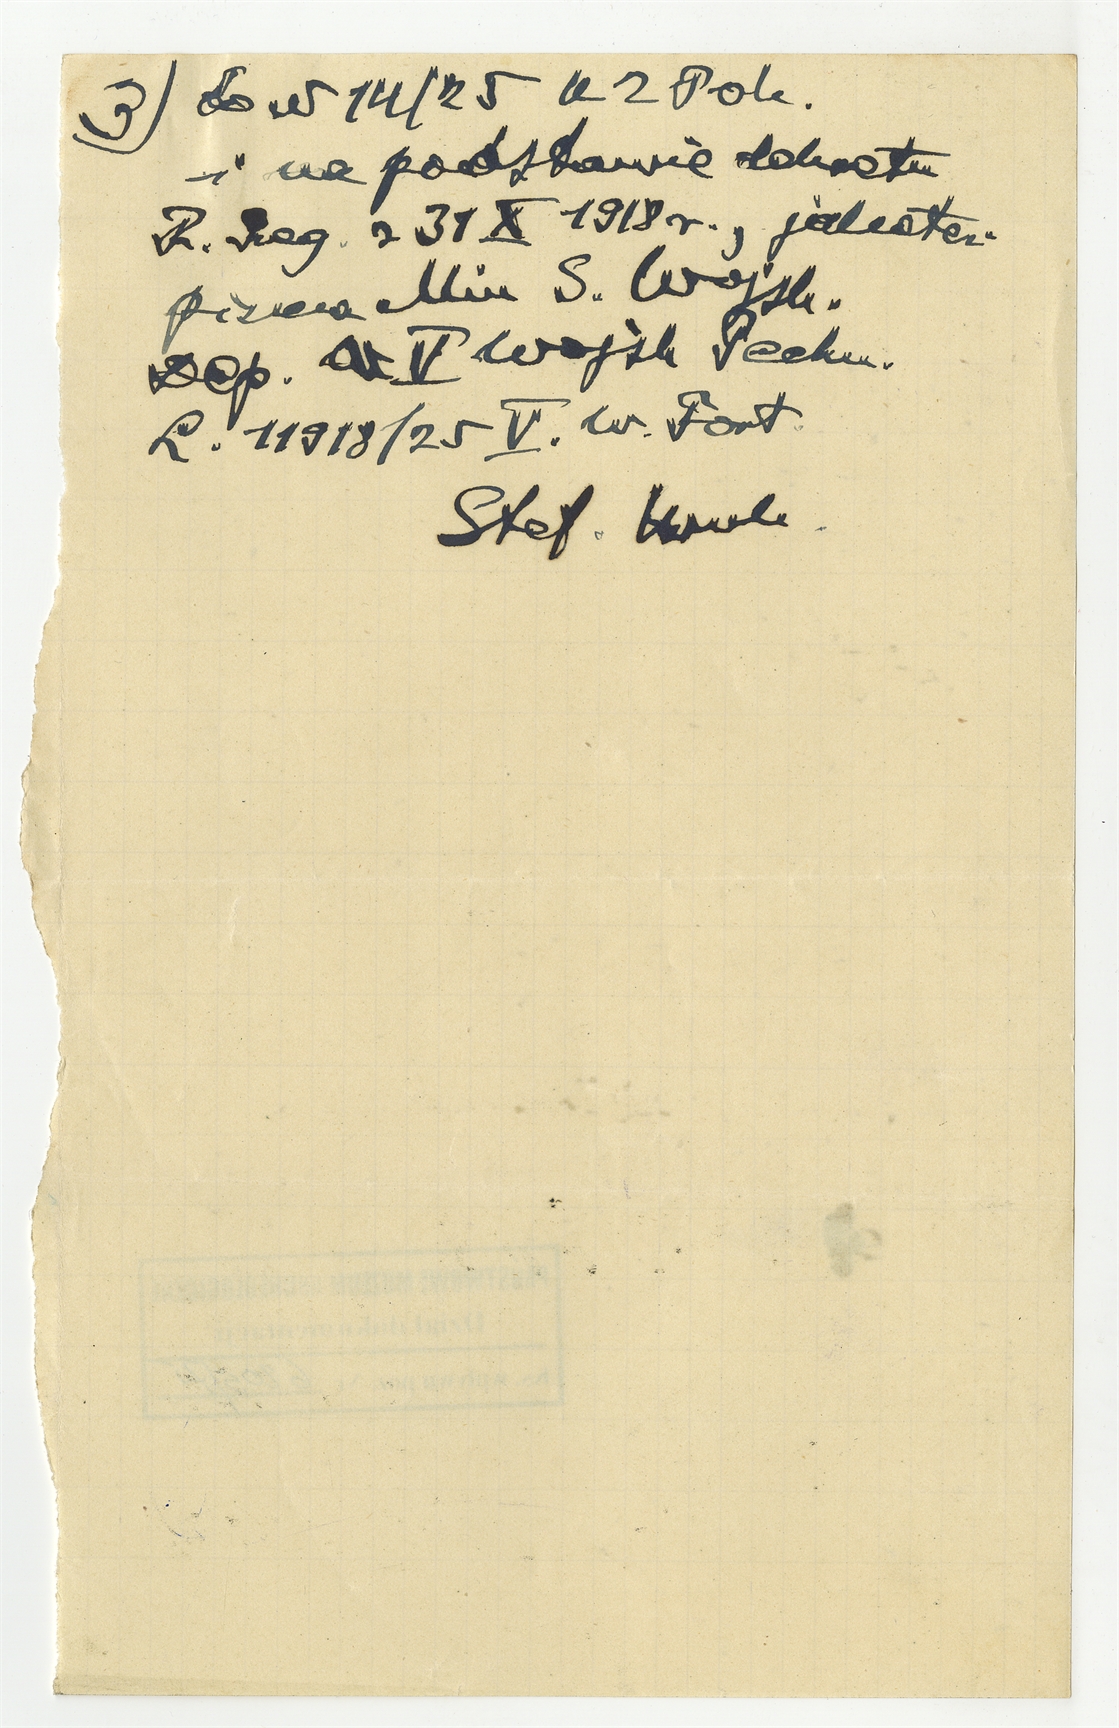 3) 14/25
i na podstawie dekretu
R. Reg. z 31 X 1918 r., jakoteż
pisma Min S. Wojsk.
Dep. V Wojsk Techn.
L. 11918/25 V. W. Fort
Stef.